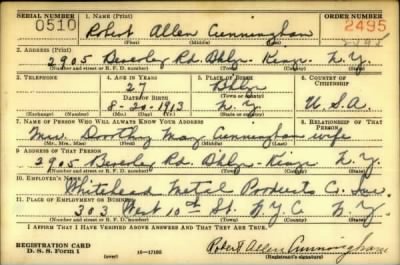 SERIAL NUMBER 1. NAME (Print) ORDER NUMBER
0510 Robert Allen Cunningham 2495
(First) (Middle) (Last)
2. ADDRESS (Print)
2905 Beverly Rd. Bklyn. Kings N.Y.
(Number and street or R. F. D. number) (Town) (County) (State)
3. TELEPHONE 4. AGE IN YEARS 5. PLACE OF BIRTH 6. COUNTRY OF CITIZENSHIP
27 Bklyn
DATE OF BIRTH (Town or county)
8-20-1913 N.Y. U.S.A
(Exchange) (Number) (Mo.) (Day) (Yr.) (State or country)
7. NAME OF PERSON WHO WILL ALWAYS KNOW YOUR ADDRESS 8. RELATIONSHIP OF THAT PERSON
Mrs. Dorothy May Cunningham wife
(Mr., Mrs., Miss) (First) (Middle) (Last)
9. ADDRESS OF THAT PERSON
2905 Beverly Rd. Bklyn. Kings N.Y.
(Number and street or R. F. D. number) (Town) (County) (State)
10. EMPLOYER'S NAME
Whitehead Metal Products Co. Inc.
11. PLACE OF EMPLOYMENT OR BUSINESS
303 West 10th St. N.Y.C. N.Y.
(Number and street or R. F. D. number) (Town) (County) (State)
I AFFIRM THAT I HAVE VERIFIED ABOVE ANSWERS AND THAT THEY ARE TRUE.
REGISTRATION CARD
D. S. S. Form 1 (over) 16-17105 Robert Allen Cunningham